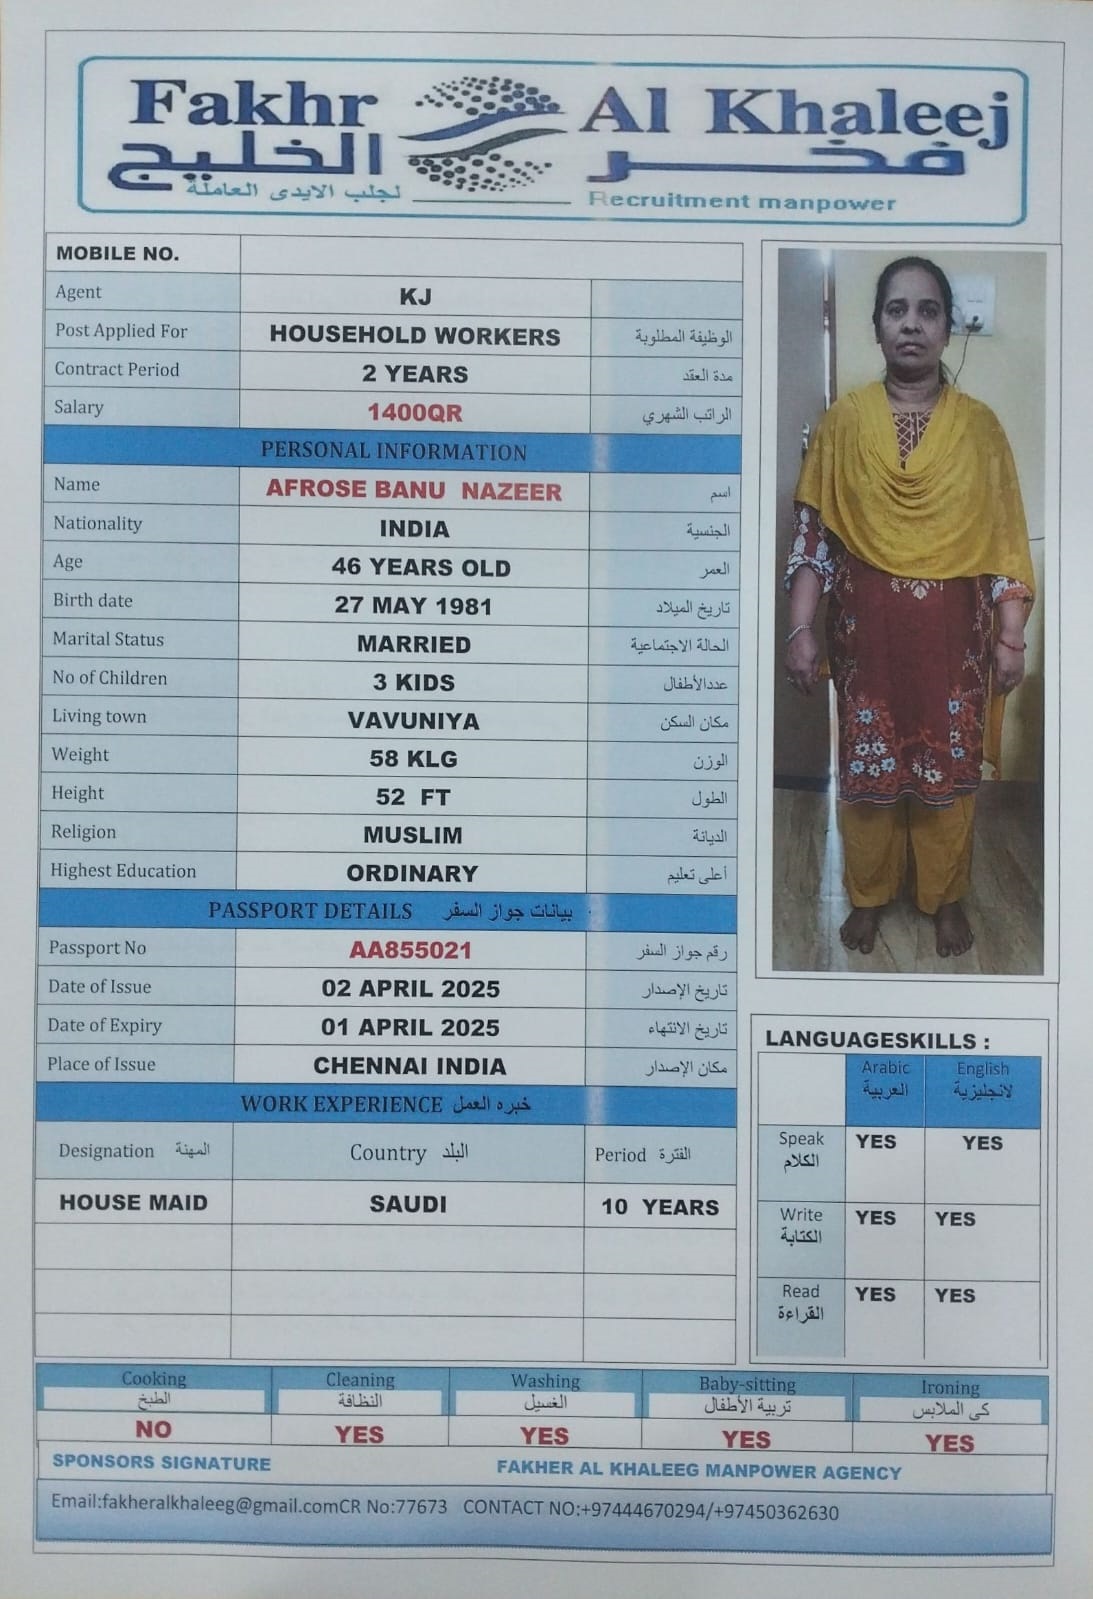 Fakhr Al Khaleej
فخر الخليج
لجلب الايدى العاملة Recruitment manpower
MOBILE NO.
Agent KJ
Post Applied For HOUSEHOLD WORKERS الوظيفة المطلوبة
Contract Period 2 YEARS مدة العقد
Salary 1400QR الراتب الشهري
PERSONAL INFORMATION
Name AFROSE BANU NAZEER اسم
Nationality INDIA الجنسية
Age 46 YEARS OLD العمر
Birth date 27 MAY 1981 تاريخ الميلاد
Marital Status MARRIED الحالة الاجتماعية
No of Children 3 KIDS عددالأطفال
Living town VAVUNIYA مكان السكن
Weight 58 KLG الوزن
Height 52 FT الطول
Religion MUSLIM الديانة
Highest Education ORDINARY أعلى تعليم
PASSPORT DETAILS بيانات جواز السفر
Passport No AA855021 رقم جواز السفر
Date of Issue 02 APRIL 2025 تاريخ الإصدار
Date of Expiry 01 APRIL 2025 تاريخ الانتهاء
Place of Issue CHENNAI INDIA مكان الإصدار
WORK EXPERIENCE خبره العمل
Designation المهنة Country البلد Period الفترة
HOUSE MAID SAUDI 10 YEARS
LANGUAGESKILLS :
Arabic English
العربية لانجليزية
Speak YES YES
الكلام
Write YES YES
الكتابة
Read YES YES
القراءة
Cooking Cleaning Washing Baby-sitting Ironing
الطبخ النظافة الغسيل تربية الأطفال كى الملابس
NO YES YES YES YES
SPONSORS SIGNATURE FAKHER AL KHALEEG MANPOWER AGENCY
Email:fakheralkhaleeg@gmail.comCR No:77673 CONTACT NO:+97444670294/+97450362630